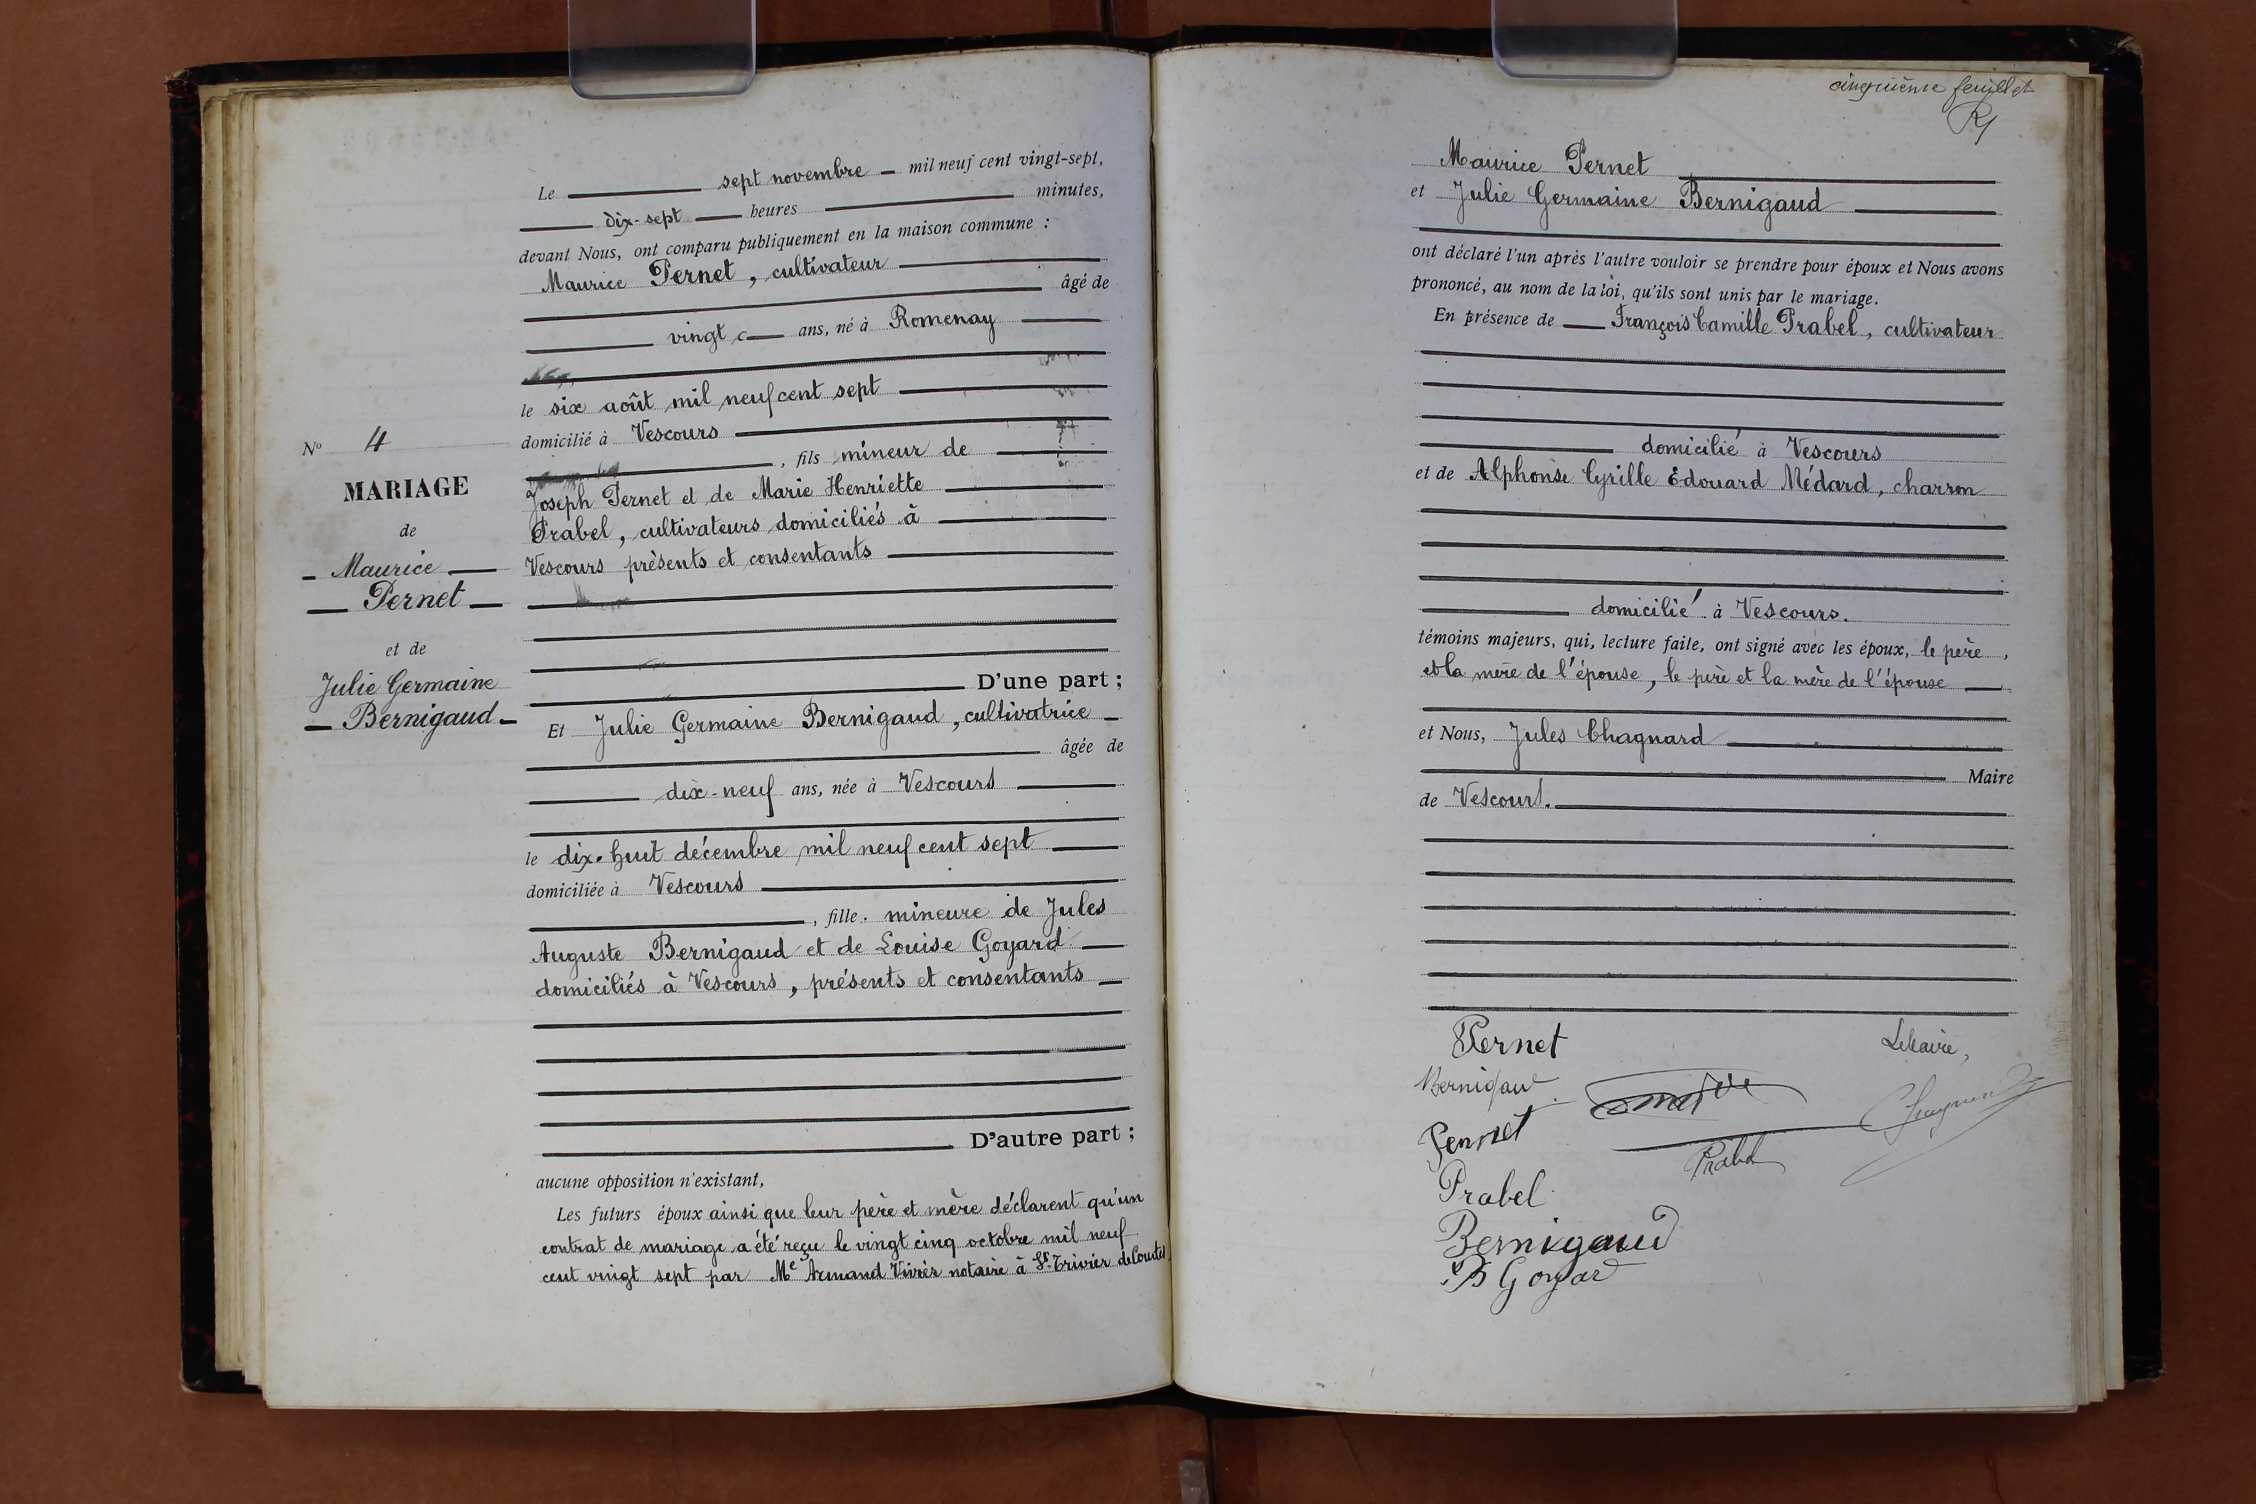 Le sept novembre mil neuf cent vingt-sept,
dix-sept heures minutes,
devant Nous, ont comparu publiquement en la maison commune :
Maurice Pernet, cultivateur
âgé de
vingt ans, né à Romenay
le six août mil neuf cent sept
domicilié à Vescours
, fils mineur de
Joseph Pernet et de Marie Henriette
Prabel, cultivateurs domiciliés à
Vescours présents et consentants
D'une part ;
Et Julie Germaine Bernigaud, cultivatrice
âgée de
dix-neuf ans, née à Vescours
le dix-huit décembre mil neuf cent sept
domiciliée à Vescours
, fille mineure de Jules
Auguste Bernigaud et de Louise Goyard
domiciliés à Vescours, présents et consentants
D'autre part ;
aucune opposition n'existant,
Les futurs époux ainsi que leur père et mère déclarent qu'un
contrat de mariage a été reçu le vingt cinq octobre mil neuf
cent vingt sept par Me Armand Vivier notaire à St-Trivier de Courtes
No 4
MARIAGE
de
Maurice
Pernet
et de
Julie Germaine
Bernigaud
cinquième feuillet
Maurice Pernet
et Julie Germaine Bernigaud
ont déclaré l'un après l'autre vouloir se prendre pour époux et Nous avons
prononcé, au nom de la loi, qu'ils sont unis par le mariage.
En présence de François Camille Prabel, cultivateur
domicilié à Vescours
et de Alphonse Cyrille Edouard Médard, charron
domicilié à Vescours.
témoins majeurs, qui, lecture faite, ont signé avec les époux, le père,
et la mère de l'épouse, le père et la mère de l'épouse
et Nous, Jules Chagnard
Maire
de Vescours.
Pernet
Le Maire,
Bernigaud
Pernet
Prabel
Prabel
Bernigaud
Goyard